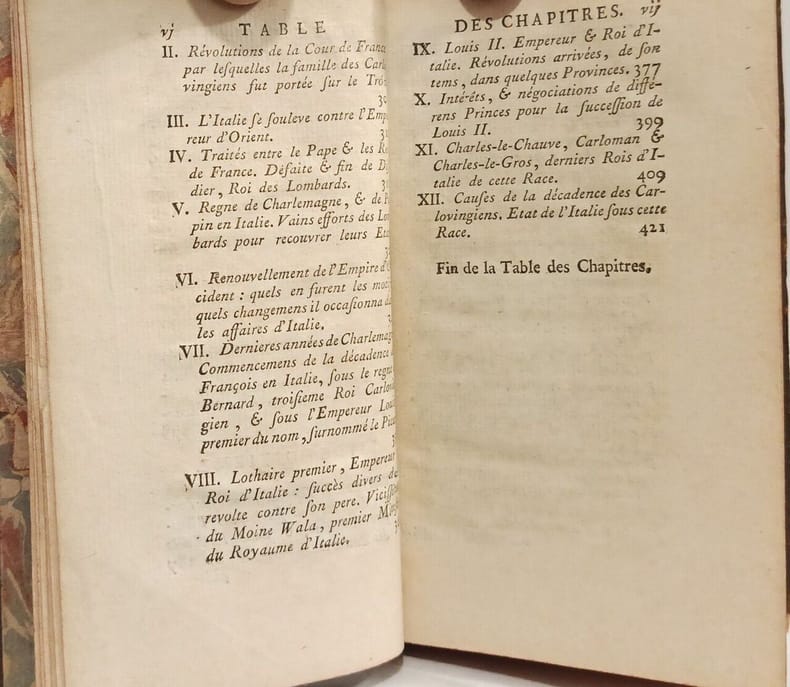 vj TABLE
II. Révolutions de la Cour de France
par leſquelles la famille des
vingiens fut portée ſur le
III. L'Italie ſe ſouleve contre
reur d'Orient.
IV. Traités entre le Pape & les
de France. Défaite & fin de
dier, Roi des Lombards.
V. Regne de Charlemagne, & de
pin en Italie. Vains efforts des
bards pour recouvrer leurs
VI. Renouvellement de l'Empire
cident : quels en furent les
quels changemens il occaſionna
les affaires d'Italie.
VII. Dernieres années de
Commencemens de la décadence
François en Italie, ſous le
Bernard, troiſieme Roi
gien, & ſous l'Empereur
premier du nom, ſurnommé le
VIII. Lothaire premier, Empereur
Roi d'Italie : ſuccès divers de
revolte contre ſon pere.
du Moine Wala, premier
du Royaume d'Italie.
DES CHAPITRES. vij
IX. Louis II. Empereur & Roi d'I-
talie. Révolutions arrivées, de ſon
tems, dans quelques Provinces. 377
X. Intérêts, & négociations de diffé-
rens Princes pour la ſucceſſion de
Louis II. 399
XI. Charles-le-Chauve, Carloman &
Charles-le-Gros, derniers Rois d'I-
talie de cette Race. 409
XII. Cauſes de la décadence des Car-
lovingiens. Etat de l'Italie ſous cette
Race. 421
Fin de la Table des Chapitres.